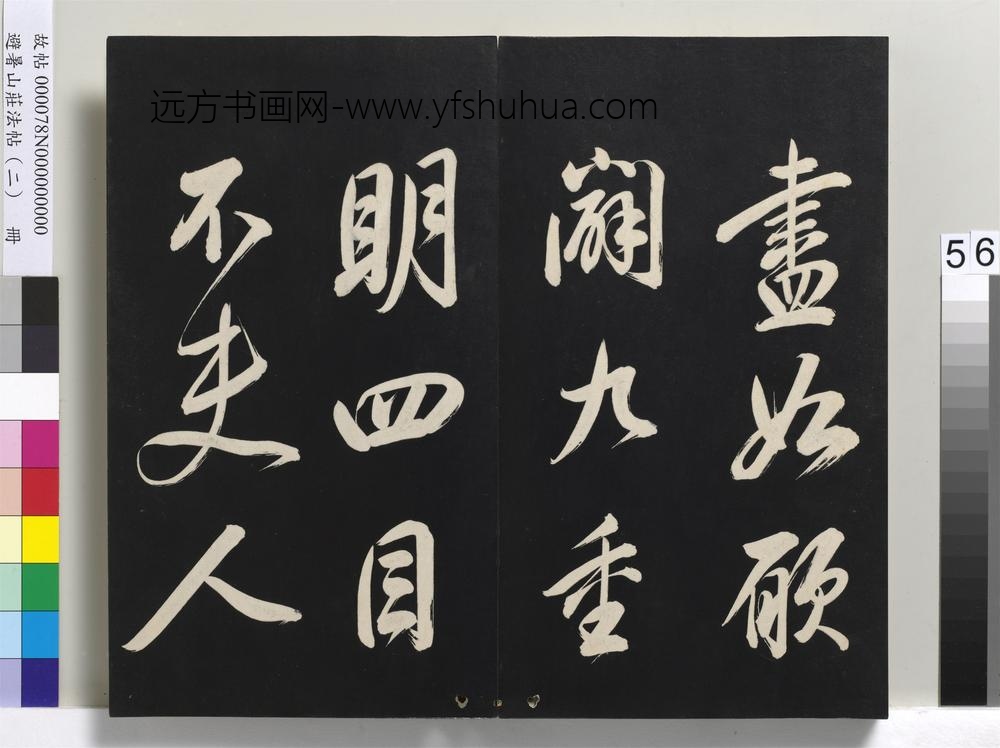 远方书画网-www.yfshuhua.com
盡始願
闢九重
明四目
不失人
故帖 000078N000000000
避暑山莊法帖（二） 冊
56